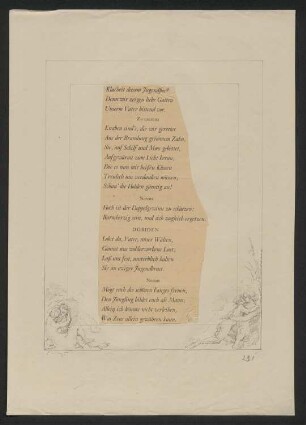 Klarheit deinem Jugendfluch
Denn wir zeigen liebe Gatten
Unserm Vater bittend vor.
Knaben sind's, die wir gerettet
Aus der Brandung grimmem Zahn,
Sie, auf Schilf und Moos gebettet,
Aufgewärmt zum Licht heran,
Die es nun mit heißen Küssen
Traulich uns verdanken müssen;
Schau' die Holden günstig an!
Nereus
Hoch ist der Doppelgewinn zu schätzen:
Barmherzig sein, und sich zugleich ergetzen.
DORIDEN
Lobst du, Vater, unser Walten,
Gönnst uns wohlerworbene Lust,
Laß uns fest, unsterblich halten
Sie an ewiger Jugendbrust.
Nereus
Mögt euch des schönen Fanges freuen,
Den Jüngling bildet euch als Mann;
Allein ich könnte nicht verleihen,
Was Zeus allein gewähren kann.